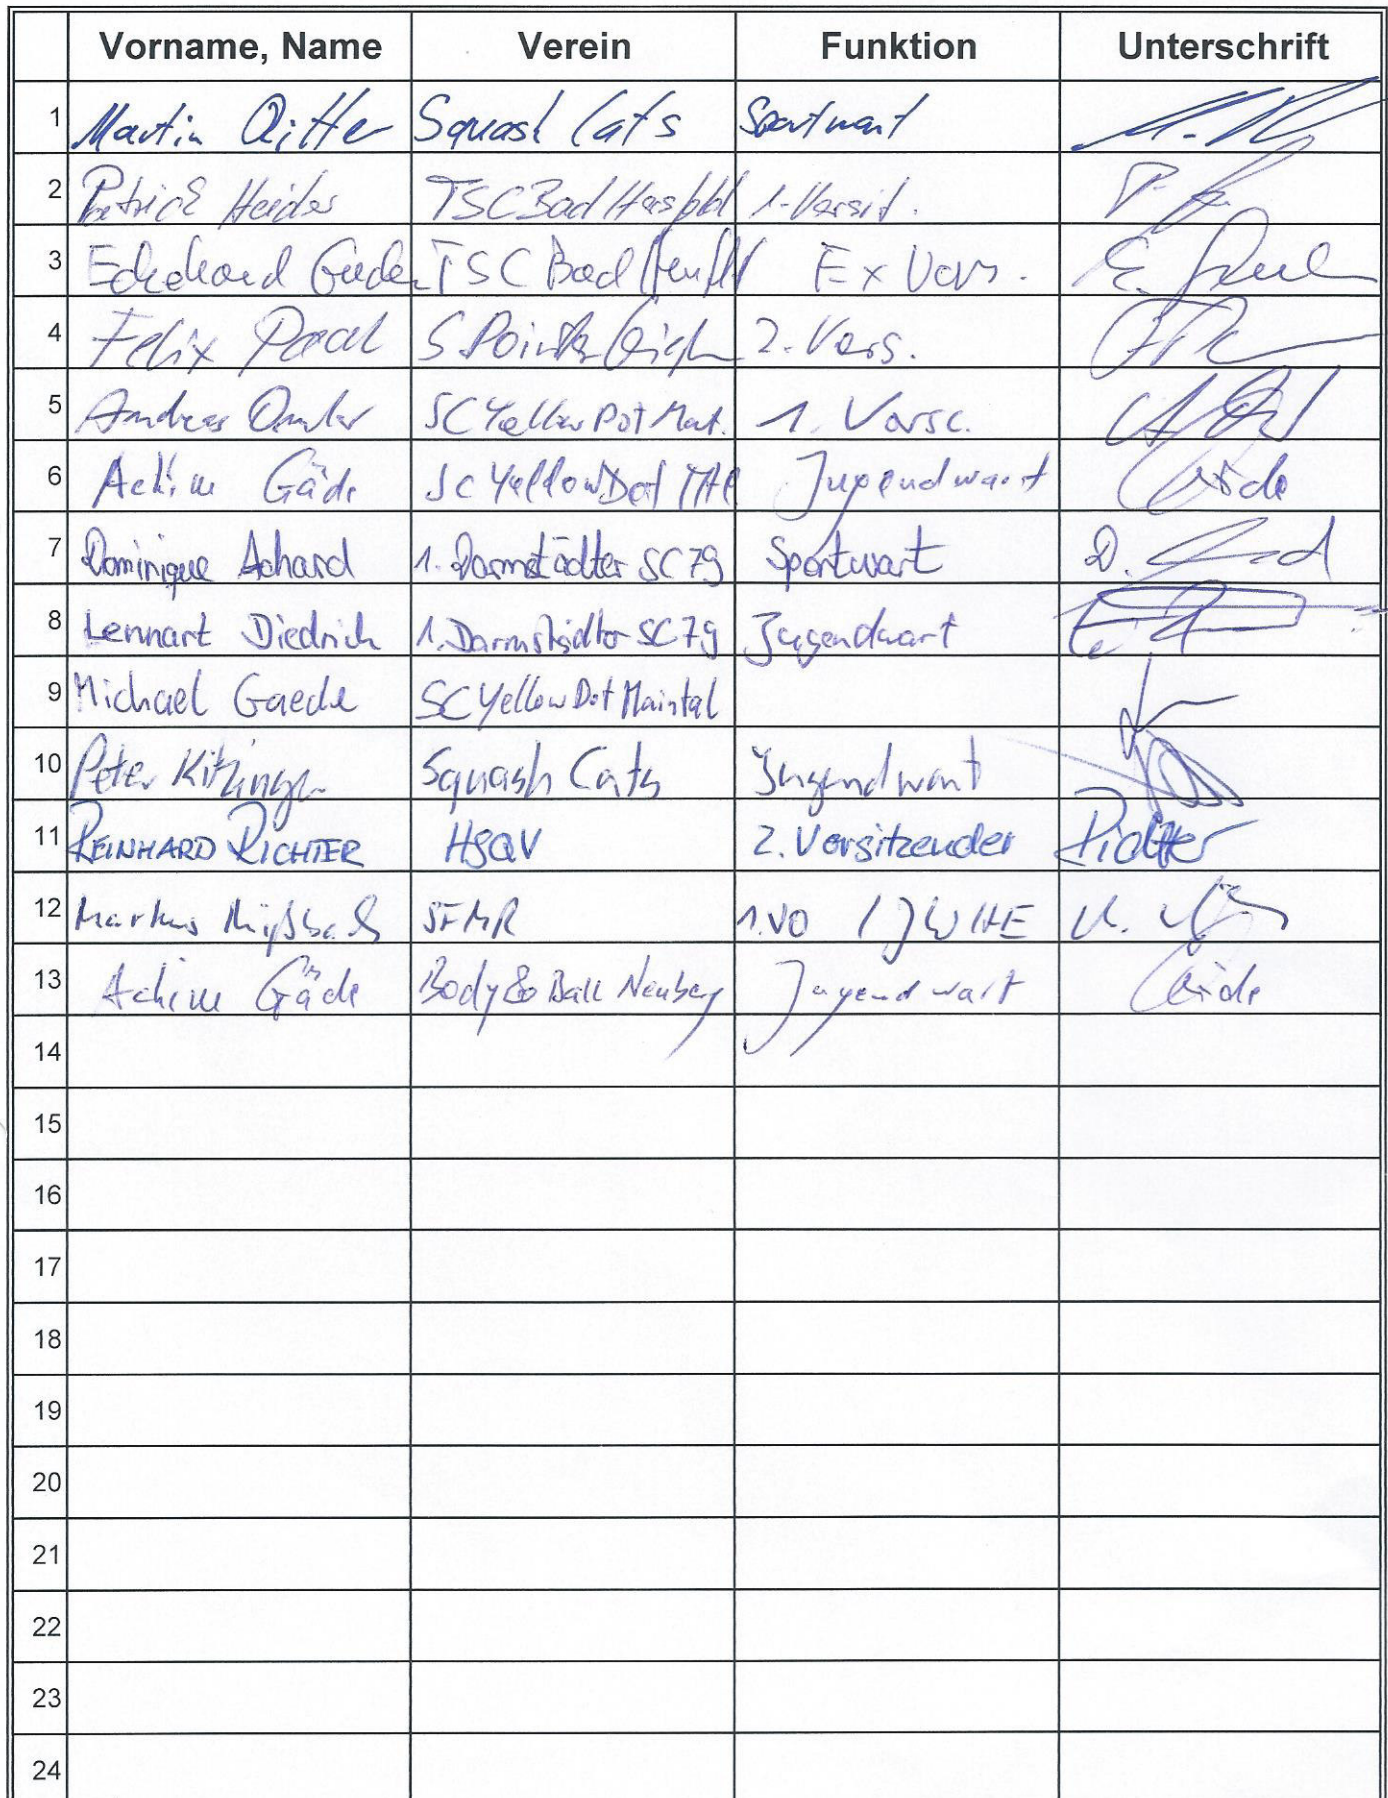 Vorname, Name Verein Funktion Unterschrift
1 Martin Ritter Squash Cats Sportwart
2 Patrick Heider TSC Bad 1. Vorsit.
3 Eckehard TSC Bad Ex Vors.
4 Felix 2. Vors.
5 Andreas SC Yellow Dot 1. Vorsc.
6 Achim Gäde SC Yellow Dot Jugendwart Gäde
7 Dominique Achard 1. Darmstädter SC 79 Sportwart D.
8 Lennart Diedrich 1. Darmstädter SC 79 Jugendwart
9 Michael Gaede SC Yellow Dot Maintal
10 Peter Squash Cats Jugendwart
11 REINHARD RICHTER HSQV 2. Vorsitzender Richter
12 Markus 1.VO / JWHE M.
13 Achim Gäde Body & Ball Neuberg Jugendwart Gäde
14
15
16
17
18
19
20
21
22
23
24